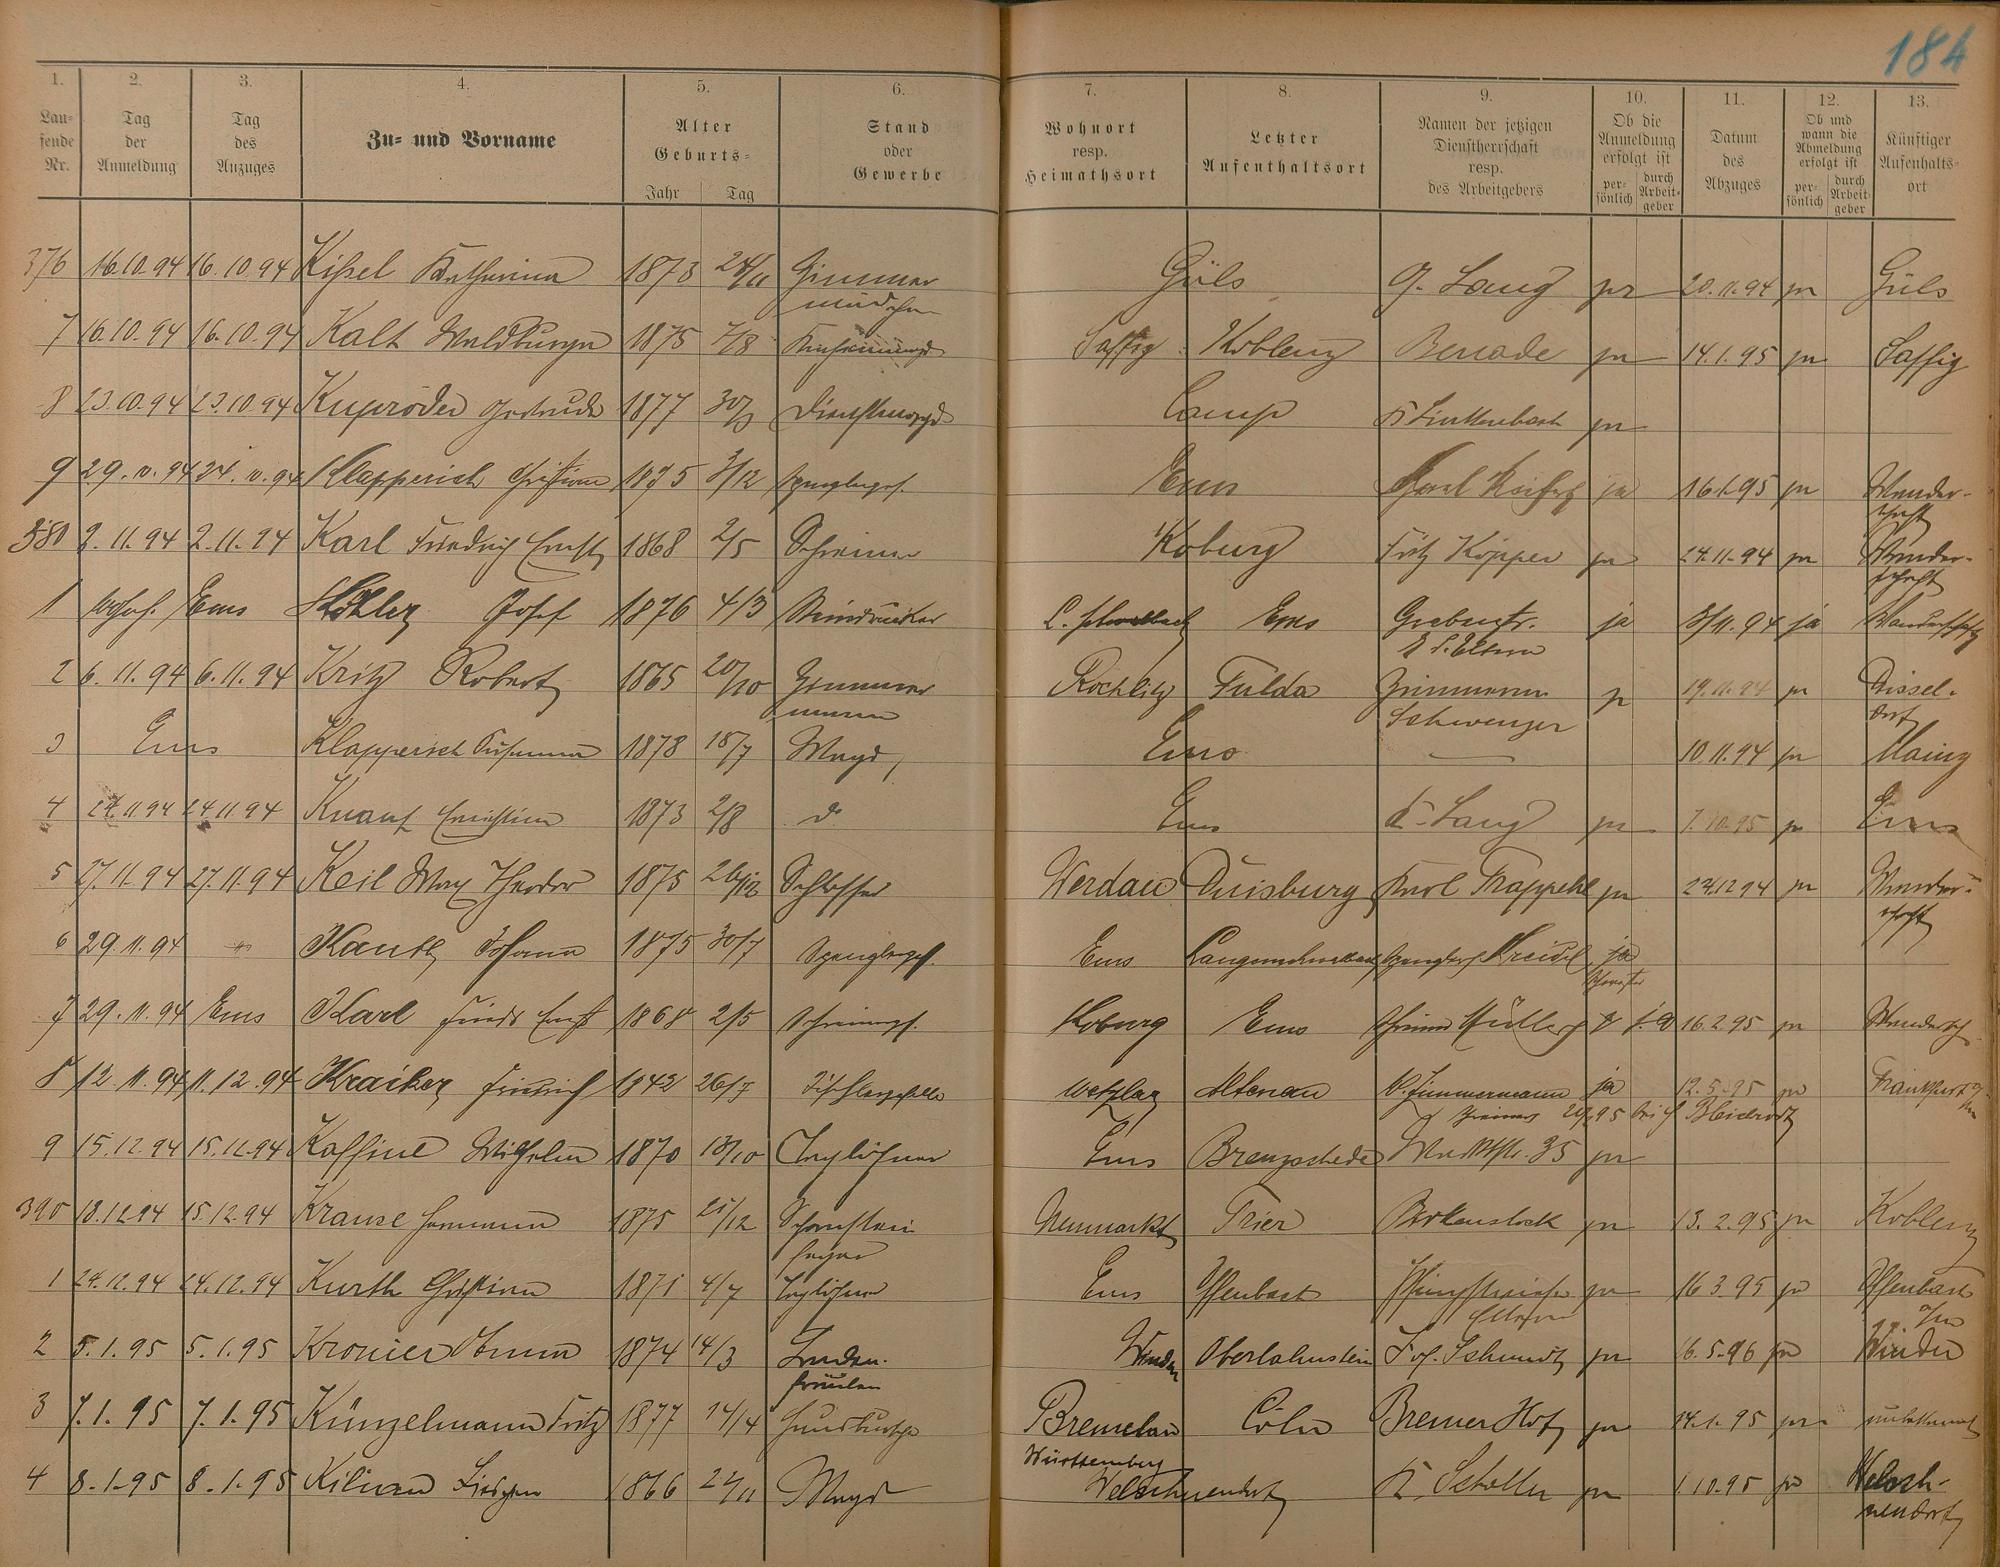 184
1. 2. 3. 4. 5. 6. 7. 8. 9. 10. 11. 12. 13.
Lau-
fende
Nr.
Tag
der
Anmeldung
Tag
des
Anzuges
Zu- und Vorname
Alter
Geburts-
Jahr Tag
Stand
oder
Gewerbe
Wohnort
resp.
Heimathsort
Letzter
Aufenthaltsort
Namen der jetzigen
Dienstherrschaft
resp.
des Arbeitgebers
Ob die
Anmeldung
erfolgt ist
per-
sönlich
durch
Arbeit-
geber
Datum
des
Abzuges
Ob und
wann die
Abmeldung
erfolgt ist
per-
sönlich
durch
Arbeit-
geber
Künftiger
Aufenthalts-
ort
376 16.10.94 16.10.94 Kissel Katharina 1873 Zimmer Güls Lang 20.11.94 Güls
mädchen
7 16.10.94 16.10.94 Kalt Waldburga 1875 7/8 Saffig Koblenz Benade ja 14.1.95 ja Saffig
8 23.10.94 23.10.94 Gertrude 1877 Dienstmagd Camp ja
9 Klapperich Christian 1875 3/12 Spenglerges. Ems ja 16.1.95 ja Wander-
schaft
380 2.11.94 2.11.94 Karl Friedrich Ernst 1868 2/5 Schreiner Koburg Fritz Köpper ja 24.11.94 ja Wander-
schaft
1 Ems Köhler Josef 1876 4/3 L. Schwalbach Ems Grabenstr. ja 8/11.94 ja Wanderschaft
2 6.11.94 6.11.94 Kritz Robert 1865 20/10 Zimmer Rochlitz Fulda Zimmermann 19.11.94 ja Düssel-
mann Schwenzer dorf
3 Ems Klapperich Susanna 1878 18/7 Magd Ems 10.11.94 ja Mainz
4 24.11.94 24.11.94 Knauf Christian 1873 2/8 do Ems Lang ja 7.10.95 ja Ems
5 27.11.94 27.11.94 Keil Max Theodor 1875 26/12 Schlosser Werdau Duisburg Karl Trappehl ja 24.12.94 ja Wander-
schaft
6 29.11.94 " Kauth Johann 1875 30/7 Spenglerges. Ems Kreidel ja
7 29.11.94 Ems Karl Friedr Ernst 1868 2/5 Schreinerges. Koburg Ems Müller 16.2.95 ja Wandersch.
8 12.11.94 11.12.94 Kraiker Friedrich 1843 26/7 Wetzlar Altenau Zimmermann ja 12.5.95 ja Frankfurt
9 15.12.94 15.12.94 Kaffine Wilhelm 1870 18/10 Taglöhner Ems Marktstr. 35 ja
390 18.12.94 15.12.94 Krause Hermann 1875 21/12 Schornstein Neumarkt Trier Birkenstock ja 13.2.95 ja Koblenz
feger
1 24.12.94 24.12.94 Kurth Christian 1871 4/7 Taglöhner Ems Offenbach ja 16.3.95 ja Offenbach
a/m
2 5.1.95 5.1.95 Kronier Anna 1874 14/3 Laden- Winden Oberlahnstein Jos. Schmidt ja 16.5.96 ja Winden
fräulein
3 7.1.95 7.1.95 Künzelmann Fritz 1877 14/4 Hausbursche Bremelau Cöln Bremer Hof ja 14.1.95 ja unbekannt
Württemberg
4 8.1.95 8.1.95 Kilian Lieschen 1866 22/11 Magd Welschneudorf ja 1.10.95 ja Welsch-
neudorf